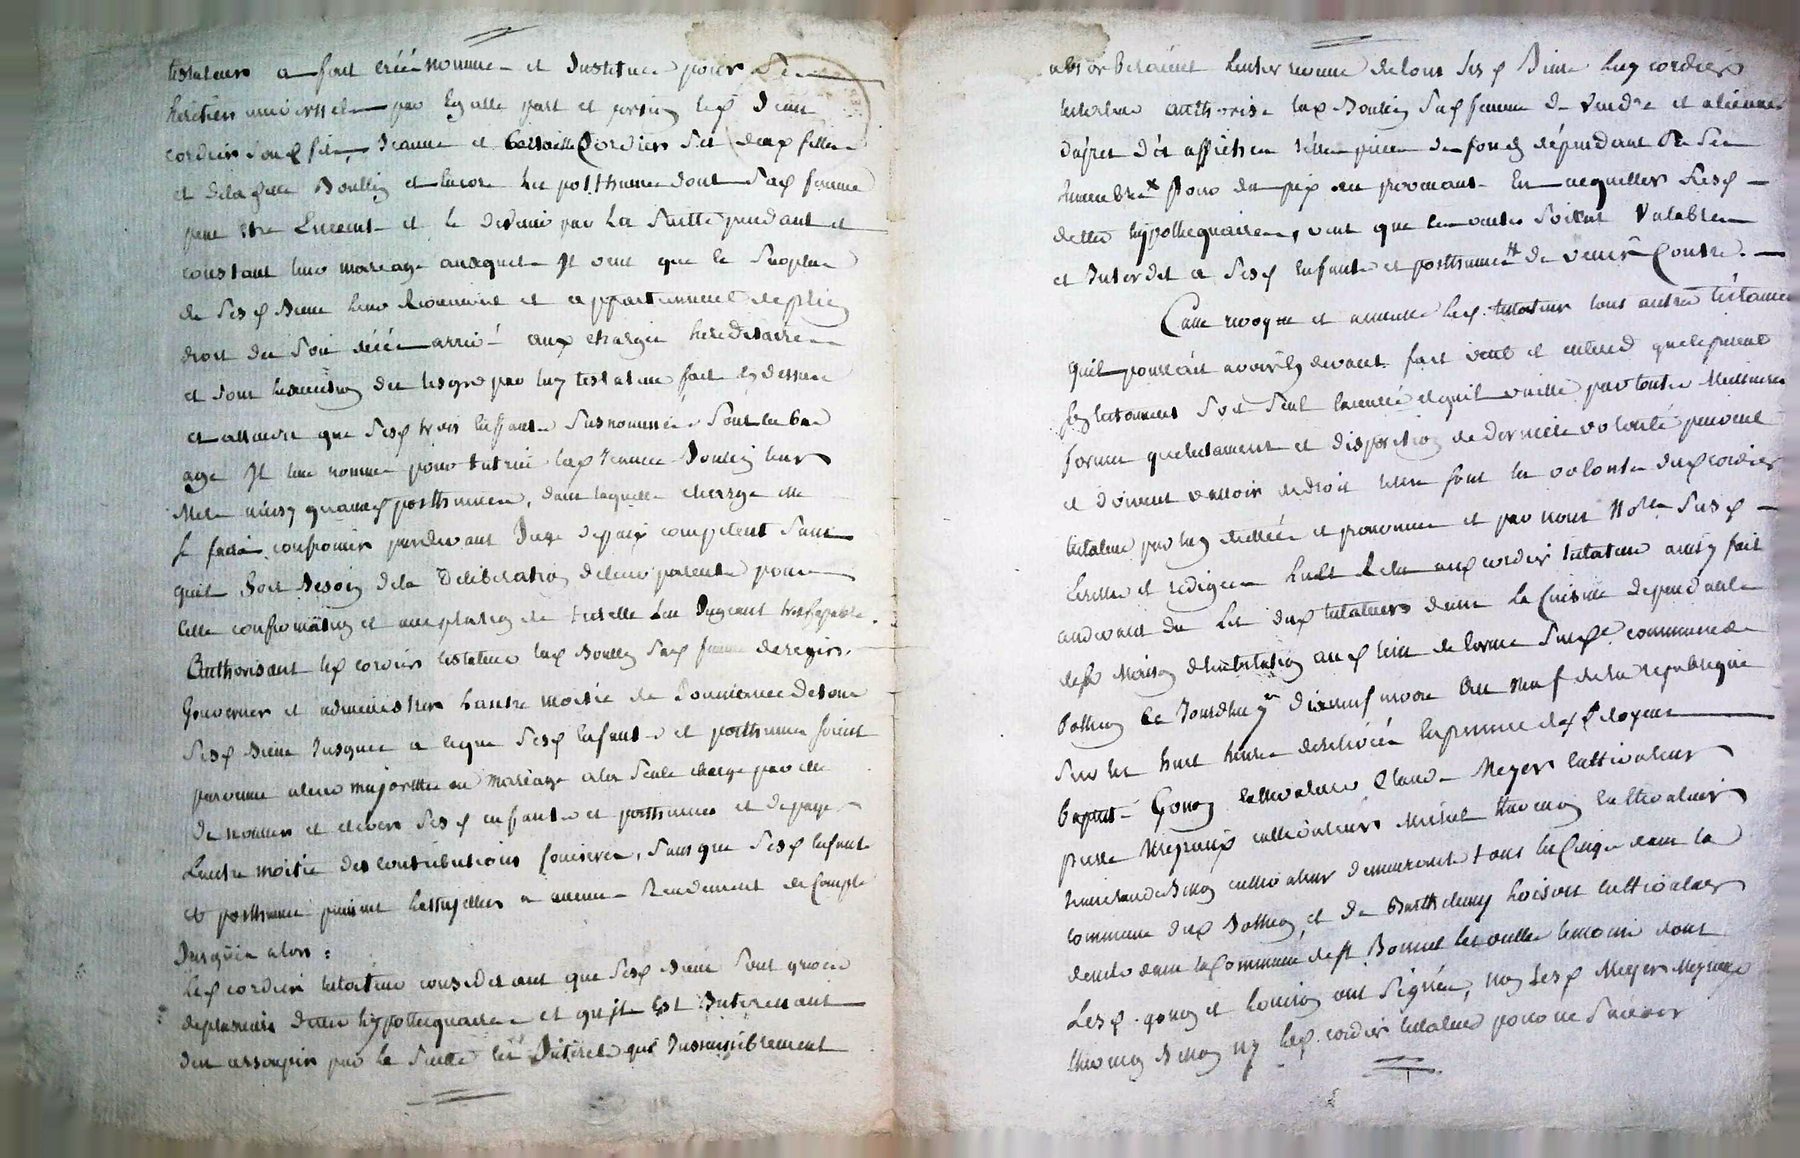 testateur a fait créé nommé et Institué pour Ses
héritiers universels par Egalle part et portion led Jean
cordier Sond fils, Jeanne et Cordier Ses deux filles
et de lad Boullin et Encore les posthumes dont Sad femme
peut Etre Enceinte et le devenir par La Suitte pendant et
constant leur mariage auxquels Il veut que le Surplus
de Sesd Biens leur Reviennent et appartiennent de plein
droit dès Son décès arrivé aux charges héréditaires
et Sous des legs par luy testateur fait cy dessus
et attendu que Sesd trois Enfants Susnommés Sont En bas
age Il leur nomme pour tutrice lad Jeanne Boullin leur
Mere ainsy quauxd posthumes, dans laquelle charge elle
se faira confirmer pardevant Juge de paix compétent Sans
quil Soit Besoin de la Délibération de leurs parents pour
cette confirmation et acceptation de tutelle La Jugeant
Authorisant led cordier testateur lad Boullin Sad femme de regir,
Gouverner et administrer Lautre moitié de Jouissance de tous
Sesd Biens Jusques a ce que Sesd Enfants et posthumes soient
parvenus a leur majorité ou mariage a la Seule charge par elle
de nourrir et elever Sesd enfants et posthumes et de payer
Lautre moitié des contributions foncieres, Sans que Sesd Enfants
et posthumes puissent Lassujettir a aucun Rendement de Compte
Jusqu'à alors :
Led cordier testateur considérant que Sesd Biens Sont grevés
de plusieurs dettes hypothequaires et qu'Il Est Interessant
den assoupir par la Suitte les Interets qui Insensiblement
absorberaient Lentier revenu de tous Sesd Biens luy cordier
testateur authorise lad Boullin Sad femme de Vendre et aliener
après affiches telles pièces de fonds dépendant de Ses
Immeubles pour du prix en provenant En acquitter Sesd
dettes hypothequaires, veut que les ventes Soient Valables
et Interdit a Sesd Enfants et posthumes de venir Contre.
Casse revoque et annulle led testateur tous autres testaments
quil pourrait avoir cy devant fait veut et entend que le present
testament Soit Seul Executé et quil vaille par toutes Meilleures
formes que testament et disposition de derniere volonté peuvent
et doivent valloir de droit telle Etant la volonté dud cordier
testateur par luy dictée et prononcée et par nous Nore Susd
Ecritte et redigée Lecture aud cordier testateur ainsy fait
audevant du Lit dud testateur dans La Cuisine Dependante
de sa Maison dhabitation aud lieu de Susd commune de
Bothéon Ce Jourdhuy dixneuf An neuf de la republique
Sur les huit heures En presence des Citoyens
Baptiste Gonon cultivateur Claude Meyer cultivateur
pierre Meynieux cultivateur Michel Thevenon cultivateur
cultivateur demeurants tous les Cinqs dans la
commune dud Bothéon, et de Barthelemy Loison cultivateur
demt dans la Commune de st Bonnet les oulles temoins dont
Lesd. gonon et Loison ont Signés, non Lesd Meyer Meynieux
thevenon ny led. cordier testateur pour ne Savoir